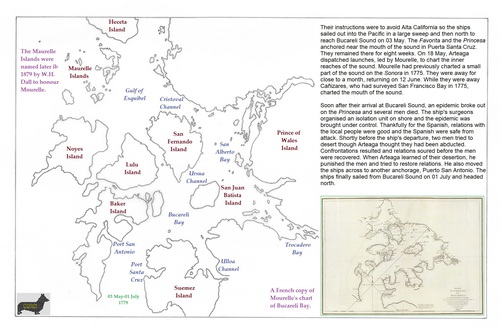 Heceta
Island
The Maurelle
Islands were
named later ib
1879 by W.H.
Dall to honour
Mourelle.
Maurelle
Islands
Gulf of
Esquibel
Cristoval
Channel
San
Fernando
Island
San
Alberto
Bay
Prince of
Wales
Island
Noyes
Island
Lulu
Island
Ursua
Channel
San Juan
Batista
Island
Baker
Island
Bucareli
Bay
Port San
Antonio
Port
Santa
Cruz
Ulloa
Channel
Trocadero
Bay
Suemez
Island
03 May-01 July
1779
A French copy of
Mourelle's chart
of Bucareli Bay.
Their instructions were to avoid Alta California so the ships
sailed out into the Pacific in a large sweep and then north to
reach Bucareli Sound on 03 May. The Favorita and the Princesa
anchored near the mouth of the sound in Puerta Santa Cruz.
They remained there for eight weeks. On 18 May, Arteaga
dispatched launches, led by Mourelle, to chart the inner
reaches of the sound. Mourelle had previously charted a small
part of the sound on the Sonora in 1775. They were away for
close to a month, returning on 12 June. While they were away
Cañizares, who had surveyed San Francisco Bay in 1775,
charted the mouth of the sound.
Soon after their arrival at Bucareli Sound, an epidemic broke out
on the Princesa and several men died. The ship's surgeons
organised an isolation unit on shore and the epidemic was
brought under control. Thankfully for the Spanish, relations with
the local people were good and the Spanish were safe from
attack. Shortly before the ship's departure, two men tried to
desert though Arteaga thought they had been abducted.
Confrontations resulted and relations soured before the men
were recovered. When Arteaga learned of their desertion, he
punished the men and tried to restore relations. He also moved
the ships across to another anchorage, Puerto San Antonio. The
ships finally sailed from Bucareli Sound on 01 July and headed
north.